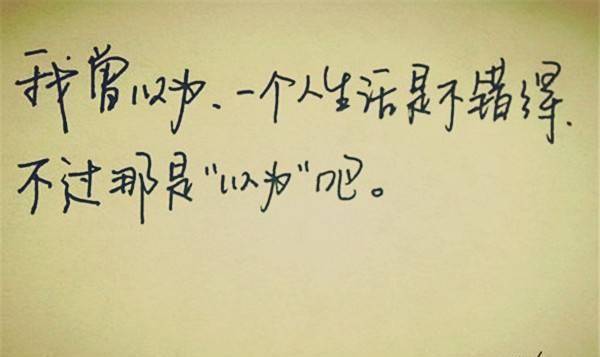 我曾以为、一个人生活是不错得.
不过那是“以为”吧。